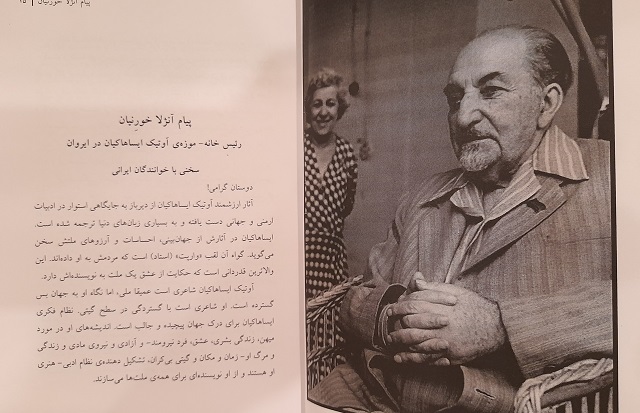 پیام آنژلا خورنیان | ۱۵
پیام آنژلا خورِنیان
رئیسِ خانه- موزه‌ی آوِتیک ایساهاکیان در ایروان
سخنی با خوانندگان ایرانی
دوستان گرامی!
آثار ارزشمند آوِتیک ایساهاکیان از دیرباز به جایگاهی استوار در ادبیات
ارمنی و جهانی دست یافته و به بسیاری زبان‌های دنیا ترجمه شده است.
ایساهاکیان در آثارش از جهان‌بینی، احساسات و آرزوهای ملتش سخن
می‌گوید. گواه آن لقب «وارپت» (استاد) است که مردمش به او داده‌اند. این
والاترین قدردانی است که حکایت از عشق یک ملت به نویسنده‌اش دارد.
آوِتیک ایساهاکیان شاعری است عمیقا ملی، اما نگاه او به جهان بس
گسترده است. او شاعری است با گستردگی در سطح گیتی. نظام فکری
ایساهاکیان برای درک جهان پیچیده و جالب است. اندیشه‌های او در مورد
میهن، زندگی بشری، عشق، فرد نیرومند- و آزادی و نیروی مادی و زندگی
و مرگ او- زمان و مکان و گیتی بی‌کران، تشکیل دهنده‌ی نظام ادبی- هنری
او هستند و از او نویسنده‌ای برای همه‌ی ملت‌ها می‌سازند.